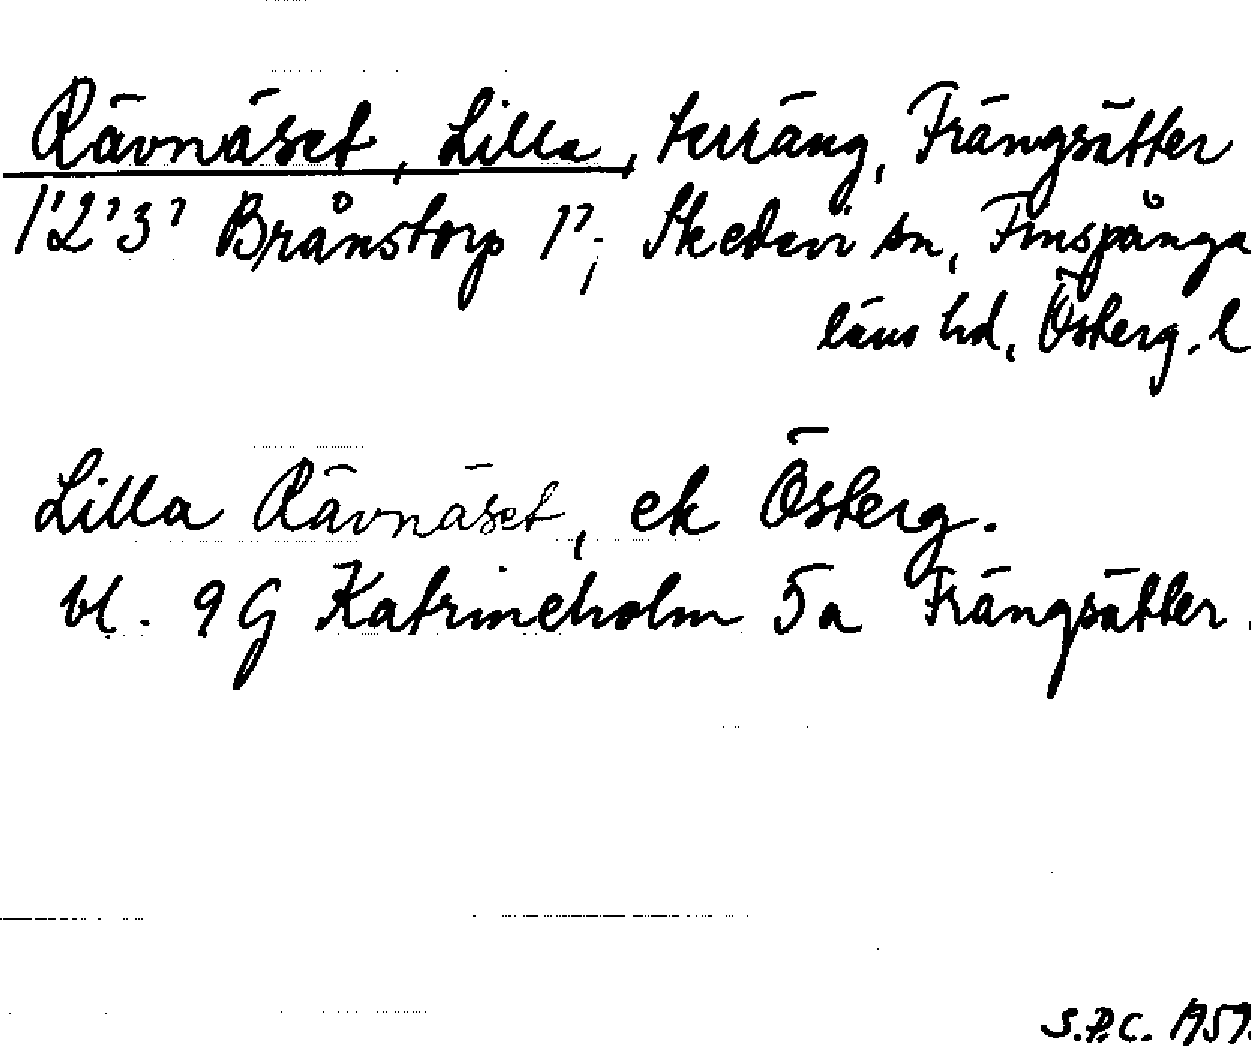 Rävnäset, Lilla, terräng, Frängsätter
1'2'3' Brånstorp 1'; Skedevi sn, Finspånga
läns hd, Österg. l
Lilla Rävnäset, ek Österg.
bl. 9 G Katrineholm 5a Frängsätter.
S.P.C. 1959.